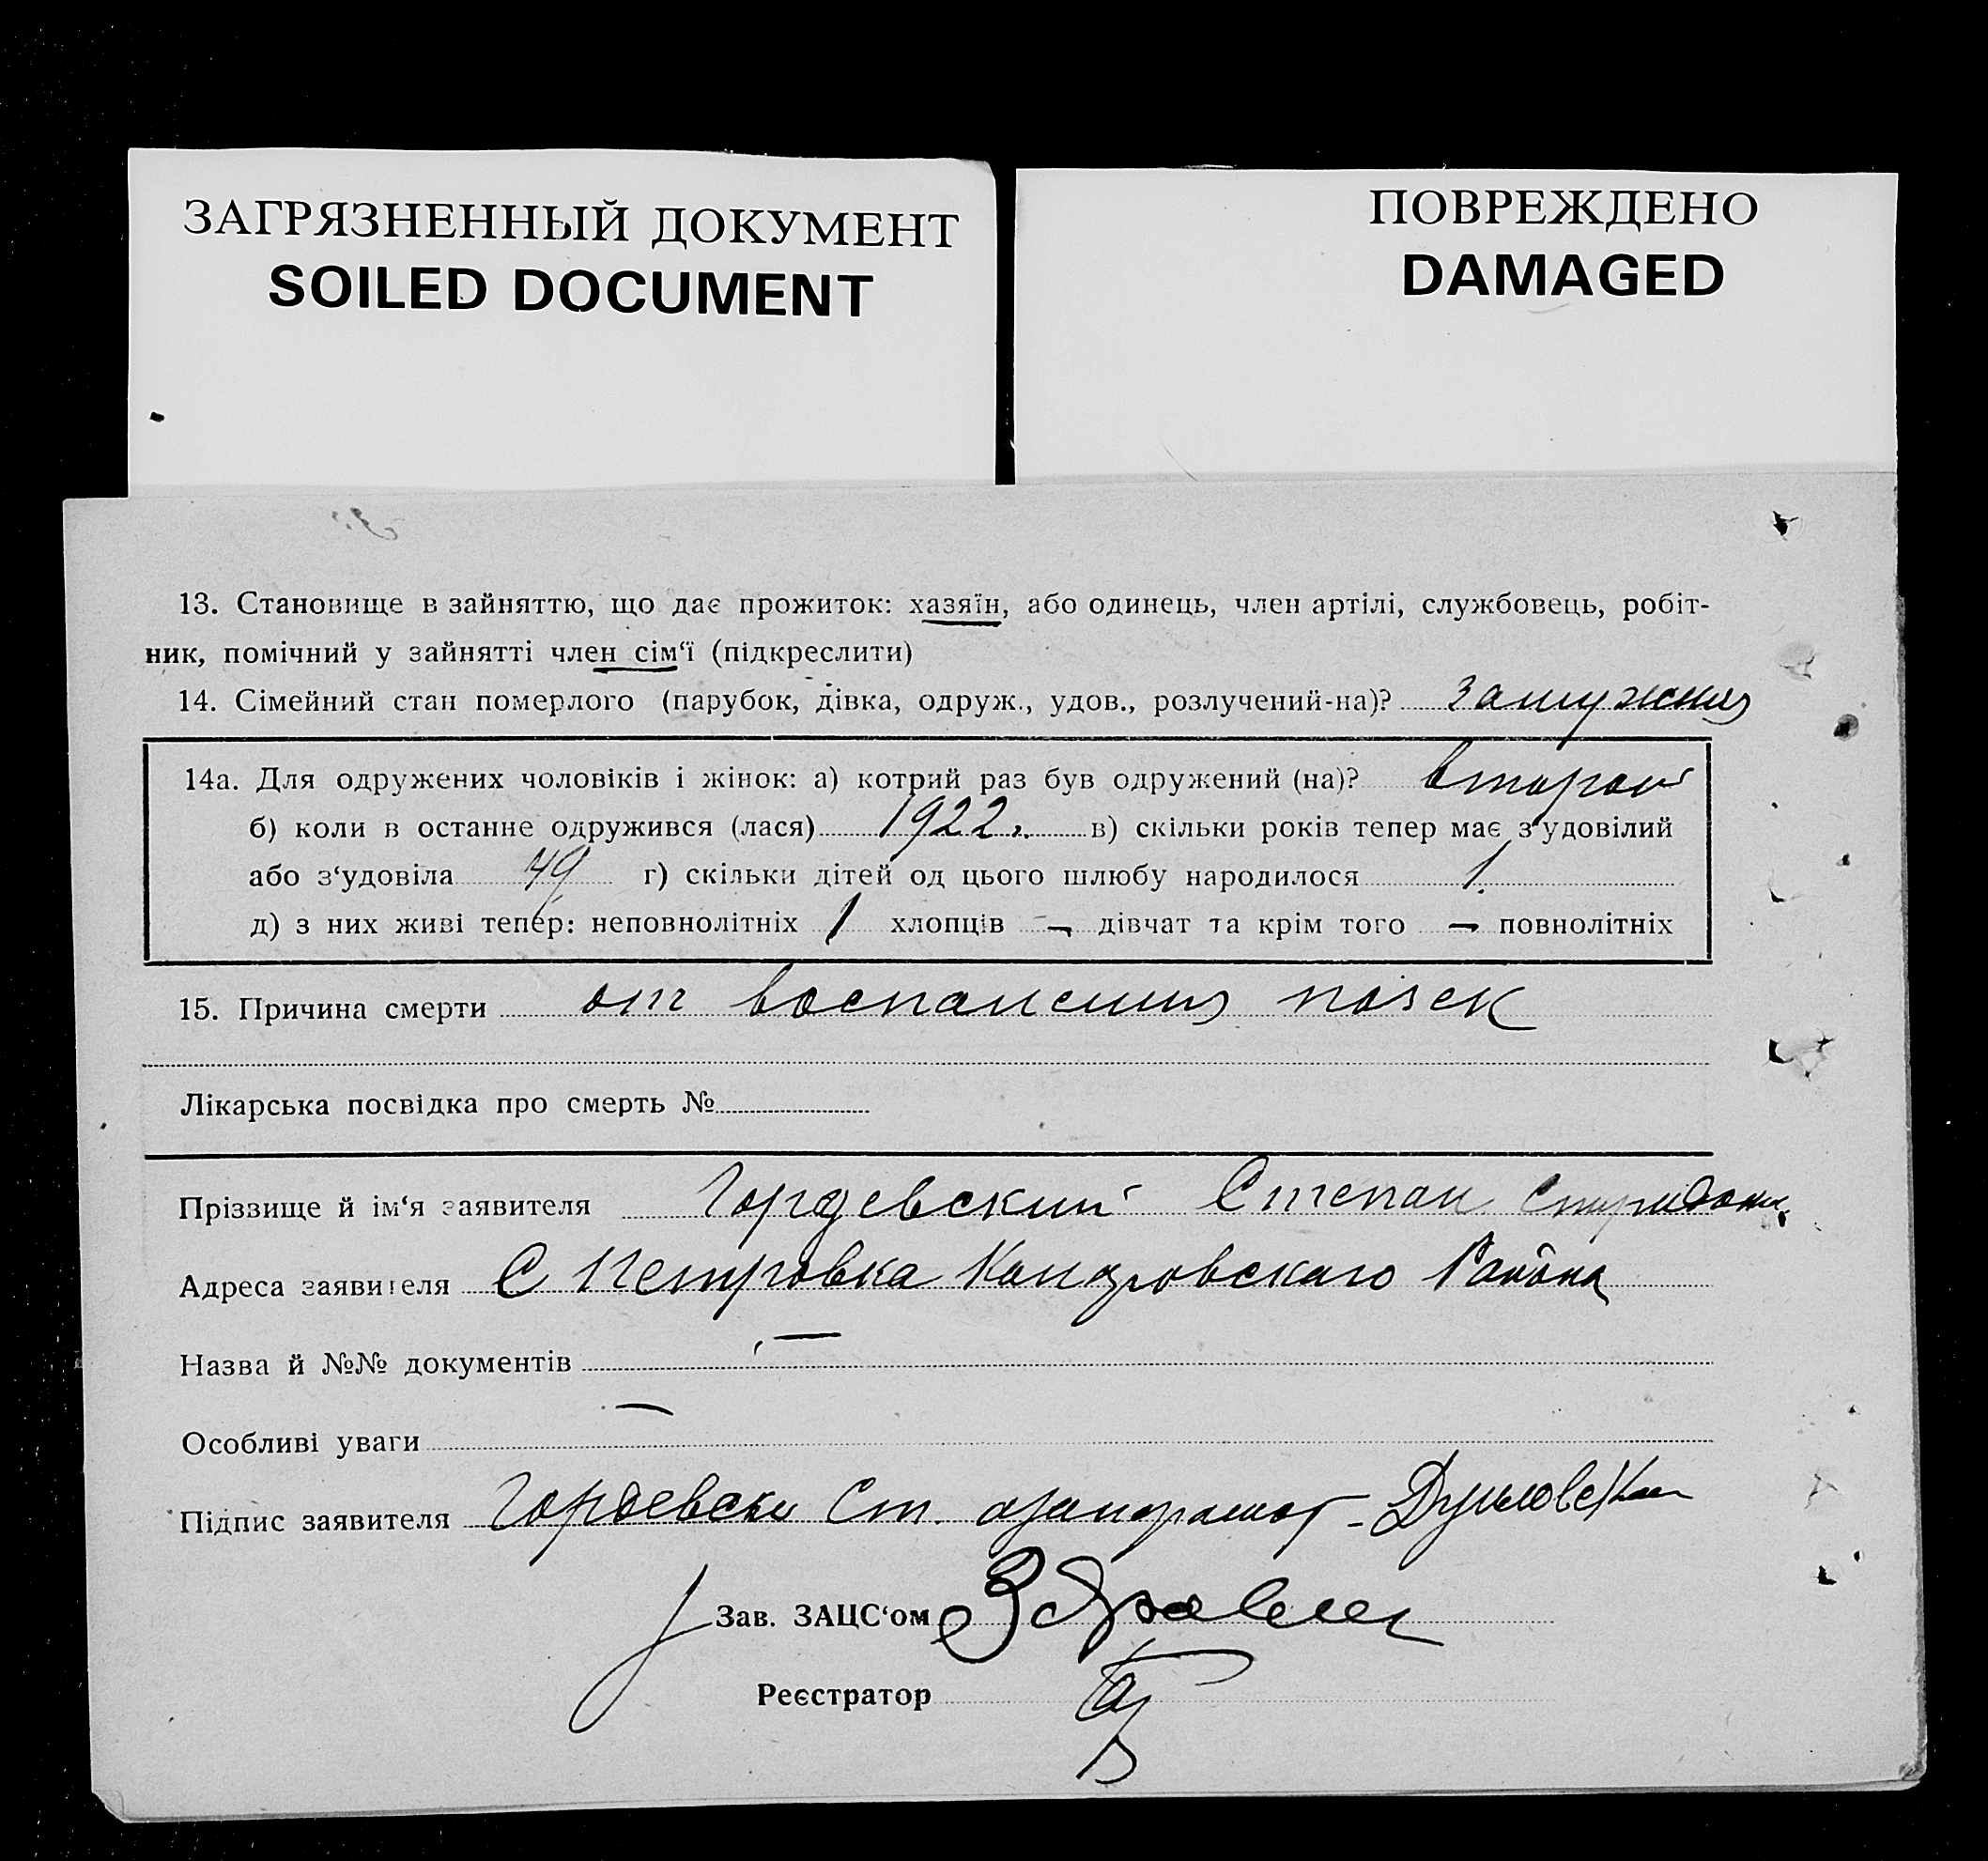 ЗАГРЯЗНЕННЫЙ ДОКУМЕНТ
SOILED DOCUMENT
ПОВРЕЖДЕНО
DAMAGED
13. Становище в зайняттю, що дає прожиток: хазяїн, або одинець, член артілі, службовець, робіт-
ник, помічний у зайнятті член сім‘ї (підкреслити)
14. Сімейний стан померлого (парубок, дівка, одруж., удов., розлучений-на)? замужняя
14а. Для одружених чоловіків і жінок: а) котрий раз був одружений (на)? второй
б) коли в останнє одружився (лася) 1922 г. в) скільки років тепер має з‘удовілий
або з‘удовіла 49 г) скільки дітей од цього шлюбу народилося 1
д) з них живі тепер: неповнолітніх 1 хлопців — дівчат та крім того — повнолітніх
15. Причина смерти от воспаления почек
Лікарська посвідка про смерть №
Прізвище й ім‘я заявителя Гордевский Степан Спиридон.
Адреса заявителя С Петровка Кандровскаго Района
Назва й №№ документів —
Особливі уваги —
Підпис заявителя Гордевски Ст.
Зав. ЗАЦС‘ом
Реєстратор